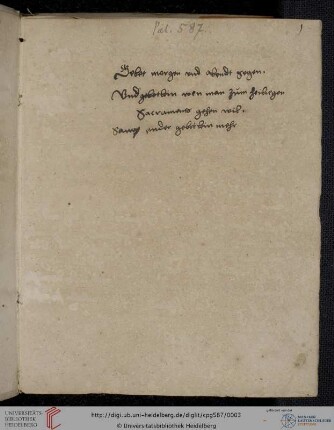 Pal. 587
1
Gebet morgen vnd abendt segen.
Vnd gebettlein wen man zum heiligen
Sacrament gehen wil.
Sampt ander gebettlein mehr
UNIVERSITÄTS-
BIBLIOTHEK
HEIDELBERG
http://digi.ub.uni-heidelberg.de/diglit/cpg587/0003
© Universitätsbibliothek Heidelberg